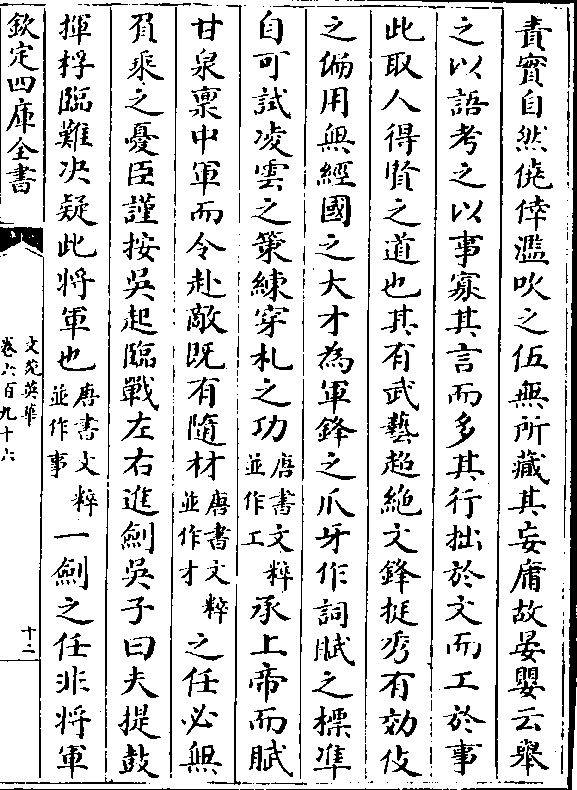 責實自然僥倖濫吹之伍無所藏其妄庸故晏嬰云舉
之以語考之以事寡其言而多其行拙於文而工於事
此取人得賢之道也其有武藝超絶文鋒挺秀有効伎
之偏用無經國之大才為軍鋒之爪牙作詞賦之標準
自可試凌雲之策練穿札之功唐書文粹並作工承上帝而賦
甘泉稟中軍而令赴敵既有隨材唐書文粹並作才之任必無
負乘之憂臣謹按吳起臨戰左右進劍吳子曰夫提鼓
揮桴臨難决疑此將軍也唐書文粹並作事一劍之任非將軍
欽定四庫全書
文苑英華
卷六百九十六
十二